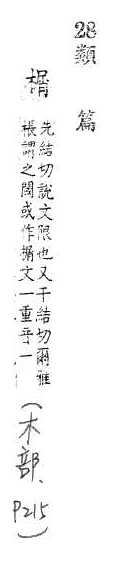 28 類篇
榍
先結切說文限也又千結切爾雅
棖謂之閾或作榍文一重音一
(木部、P215)